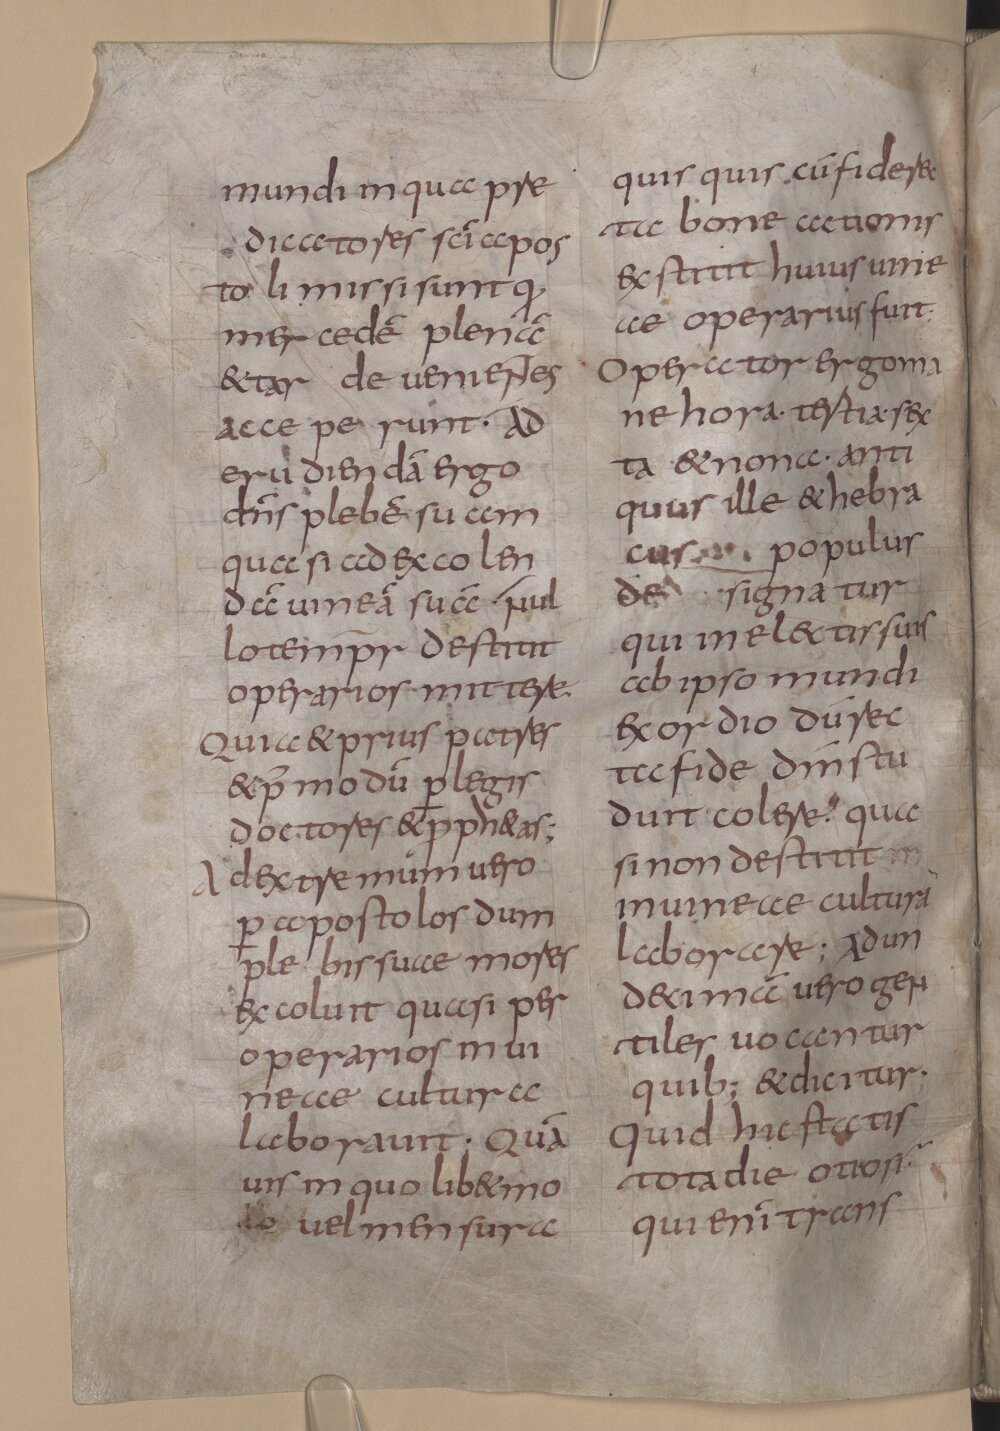 mundi in qua pre
dicatores sc̄i apos
to li missi sunt q̄
mer cedē plenā
& tar de venien̄es
acce pe runt · Ad
eru dien dā ergo
dn̄s plebē su am
qua si ad excolen
dā uineā suā · nul
lo temp̄r destitit
operarios mittere·
Quia & prius patres
& p̄ modū ꝑ legis
doctores & ꝓph&as;
Ad extremum uero
ꝑ apostolos dum
ple bis suae mores
excoluit quasi per
operarios in ui
neae culturae
laborauit · Quā
uis in quo lib& mo
do vel mensura
quis quis cū fide rec
ta bone actionis
exstitit huius uine
ae operarius fuit·
Operator ergo ma
ne hora · tertia · sex
ta & nona · anti
quus ille & hebra
cus populus
de signatur
qui in el&tis suis
ab ipso mundi
exordio dū rec
ta fide dm̄ stu
duit colere· qua
si non destitit in
in uineae culturā
laborare ; Ad un
decimā uero gen
tiles uocantur
quib; & dicitur ·
Quid hic statis
tota die otiosi·
qui enī trans